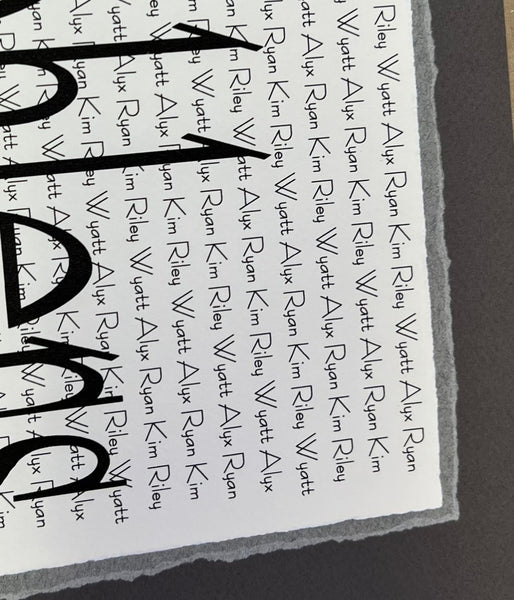 Riley Wyatt Alyx Ryan Kim Riley Wyatt Alyx Ryan
Wyatt Alyx Ryan Kim Riley Wyatt Alyx Ryan Kim
yatt Alyx Ryan Kim Riley Wyatt Alyx Ryan Kim Riley
lyx Ryan Kim Riley Wyatt Alyx Ryan Kim Riley Wyatt
an Kim Riley Wyatt Alyx Ryan Kim Riley Wyatt Alyx
Riley Wyatt Alyx Ryan Kim Riley Wyatt Alyx Ryan
ey Wyatt Alyx Ryan Kim Riley Wyatt Alyx Ryan Kim
yatt Alyx Ryan Kim Riley Wyatt Alyx Ryan Kim Riley
Alyx Ryan Kim Riley Wyatt Alyx Ryan Kim Riley Wyatt
yan Kim Riley Wyatt Alyx Ryan Kim Riley Wyatt Alyx
Wyatt Alyx Ryan Kim Riley Wyatt Alyx Ryan
blend